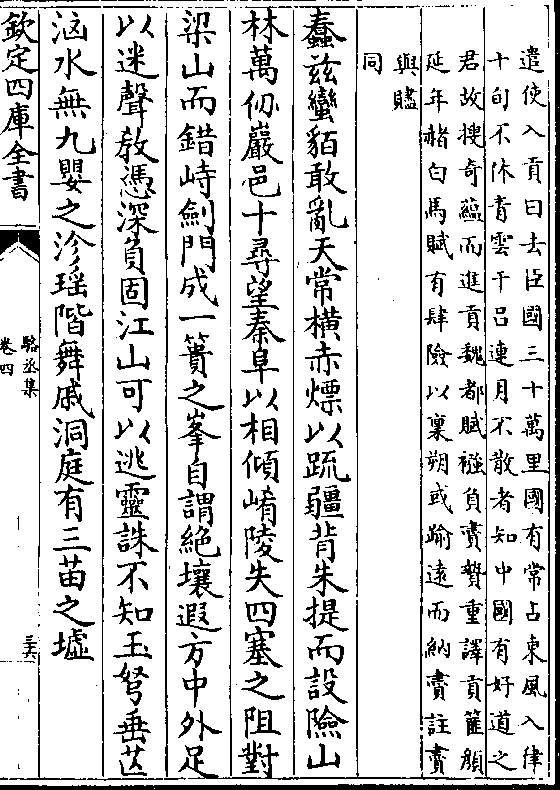 遣使入貢曰去臣國三十萬里國有常占東風入律
十旬不休青雲干吕連月不散者知中國有好道之
君故搜奇藴而進貢魏都賦襁負賮贄重譯貢篚顔
延年赭白馬賦有肆險以稟朔或踰遠而納賮註賮
與贐
同
蠢兹蠻貊敢亂天常横赤熛以䟽疆背朱提而設險山
林萬仭巖邑十尋望秦阜以相傾崤陵失四塞之阻對
梁山而錯峙劍門成一簣之峯自謂絶壤遐方中外足
以迷聲教憑深負固江山可以逃靈誅不知玉弩垂芒
洶水無九嬰之沴瑶階舞戚洞庭有三苗之墟
欽定四庫全書
駱丞集
卷四
三六